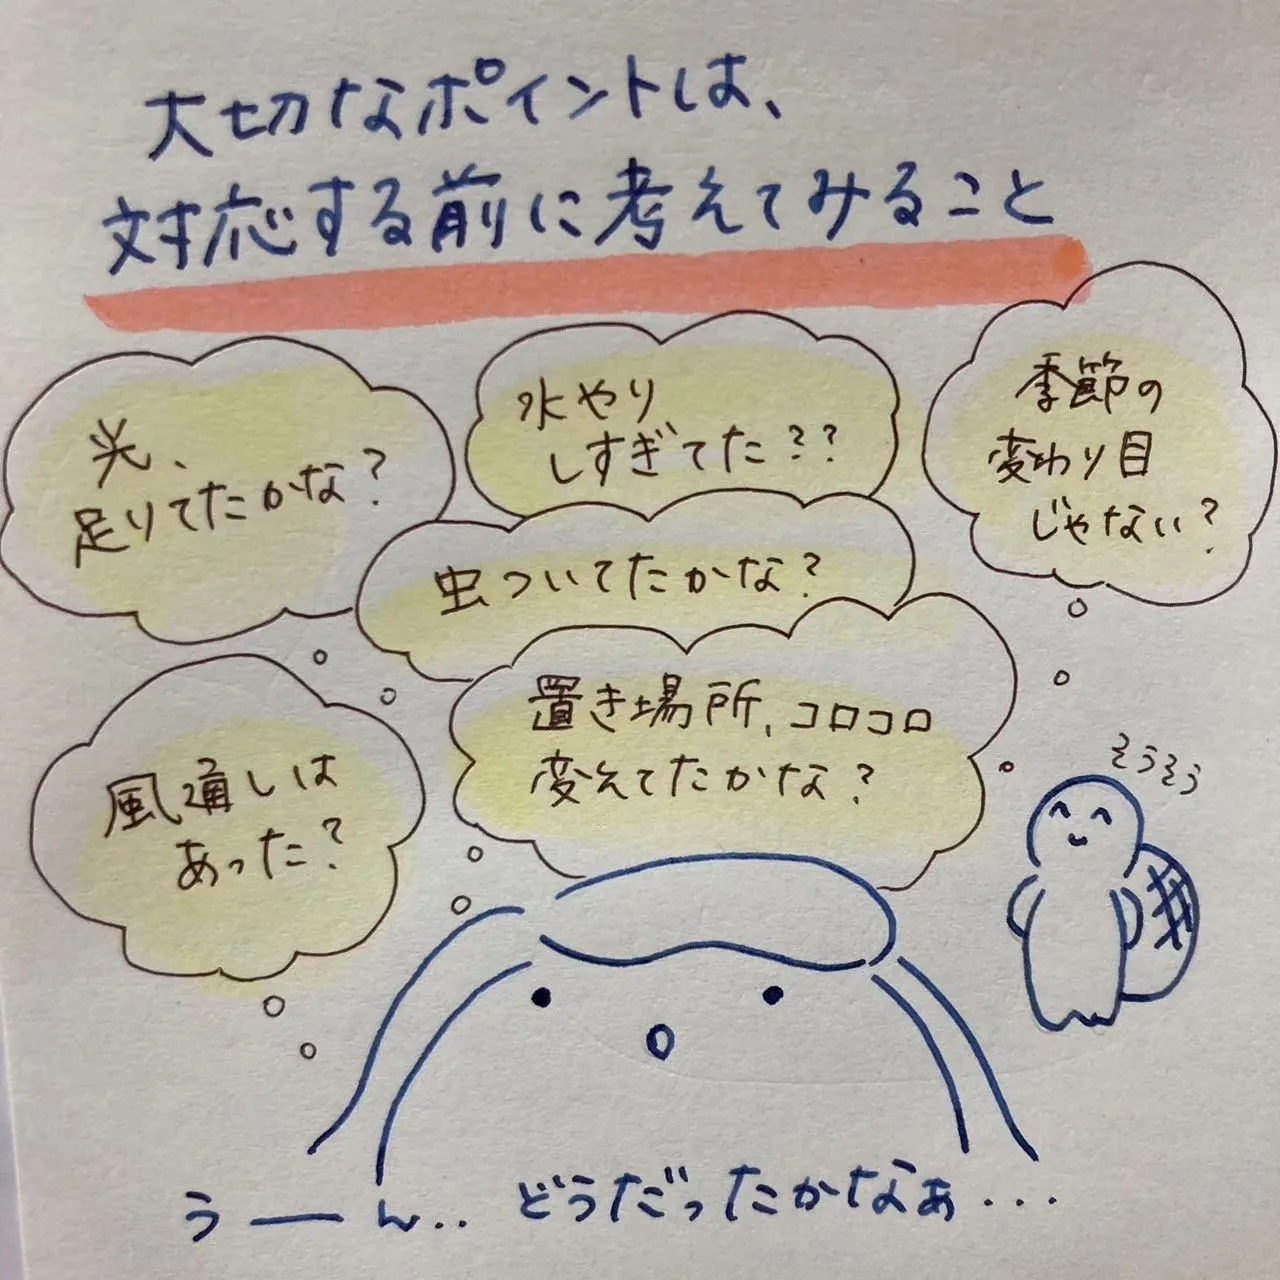 大切なポイントは、
対応する前に考えてみること
光、
足りてたかな？
水やり
しすぎてた？？
季節の
変わり目
じゃない？
虫ついてたかな？
置き場所、コロコロ
変えてたかな？
風通しは
あった？
そうそう
うーん‥ どうだったかなぁ...